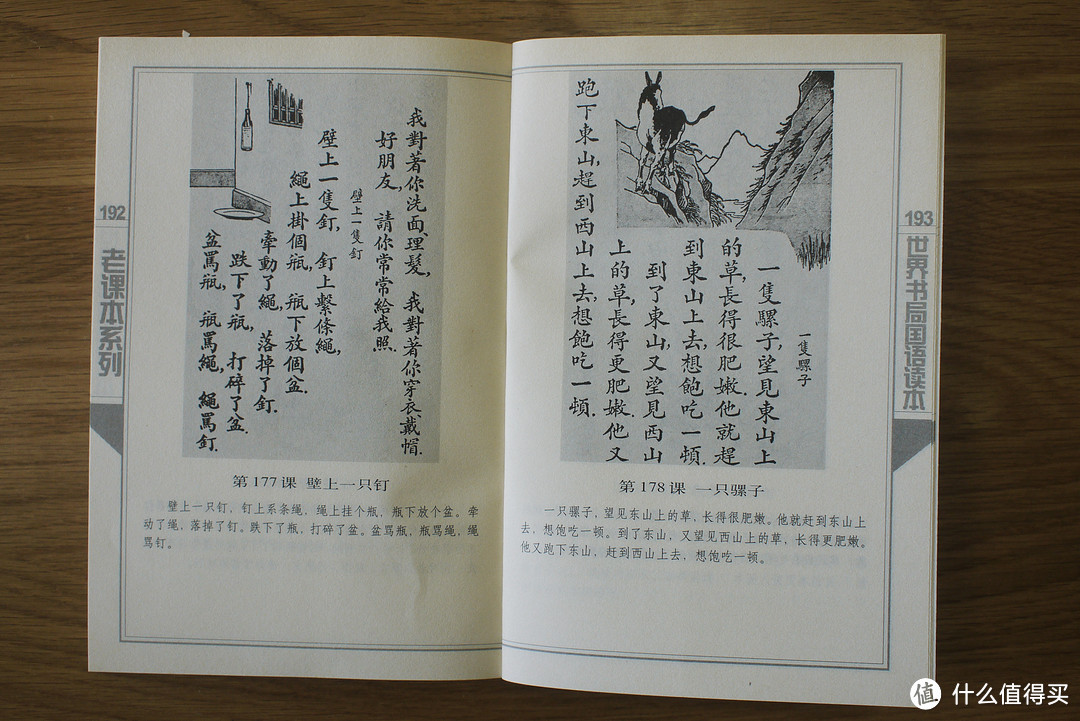 192
老课本系列
我對著你洗面、理髮,我對著你穿衣、戴帽.
好朋友,請你常常給我照.
壁上一隻釘
壁上一隻釘,釘上繫條繩,
繩上掛個瓶,瓶下放個盆.
牽動了繩,落掉了釘.
跌下了瓶,打碎了盆.
盆罵瓶,瓶罵繩,繩罵釘.
第177课 壁上一只钉
壁上一只钉，钉上系条绳，绳上挂个瓶，瓶下放个盆。牵
动了绳，落掉了钉。跌下了瓶，打碎了盆。盆骂瓶，瓶骂绳，绳
骂钉。
193
世界书局国语读本
一隻騾子
一隻騾子,望見東山上
的草,長得很肥嫩.他就趕
到東山上去,想飽吃一頓.
到了東山,又望見西山
上的草,長得更肥嫩.他又
跑下東山,趕到西山上去,想飽吃一頓.
第178课 一只骡子
一只骡子，望见东山上的草，长得很肥嫩。他就赶到东山上
去，想饱吃一顿。到了东山，又望见西山上的草，长得更肥嫩。
他又跑下东山，赶到西山上去，想饱吃一顿。
值 什么值得买